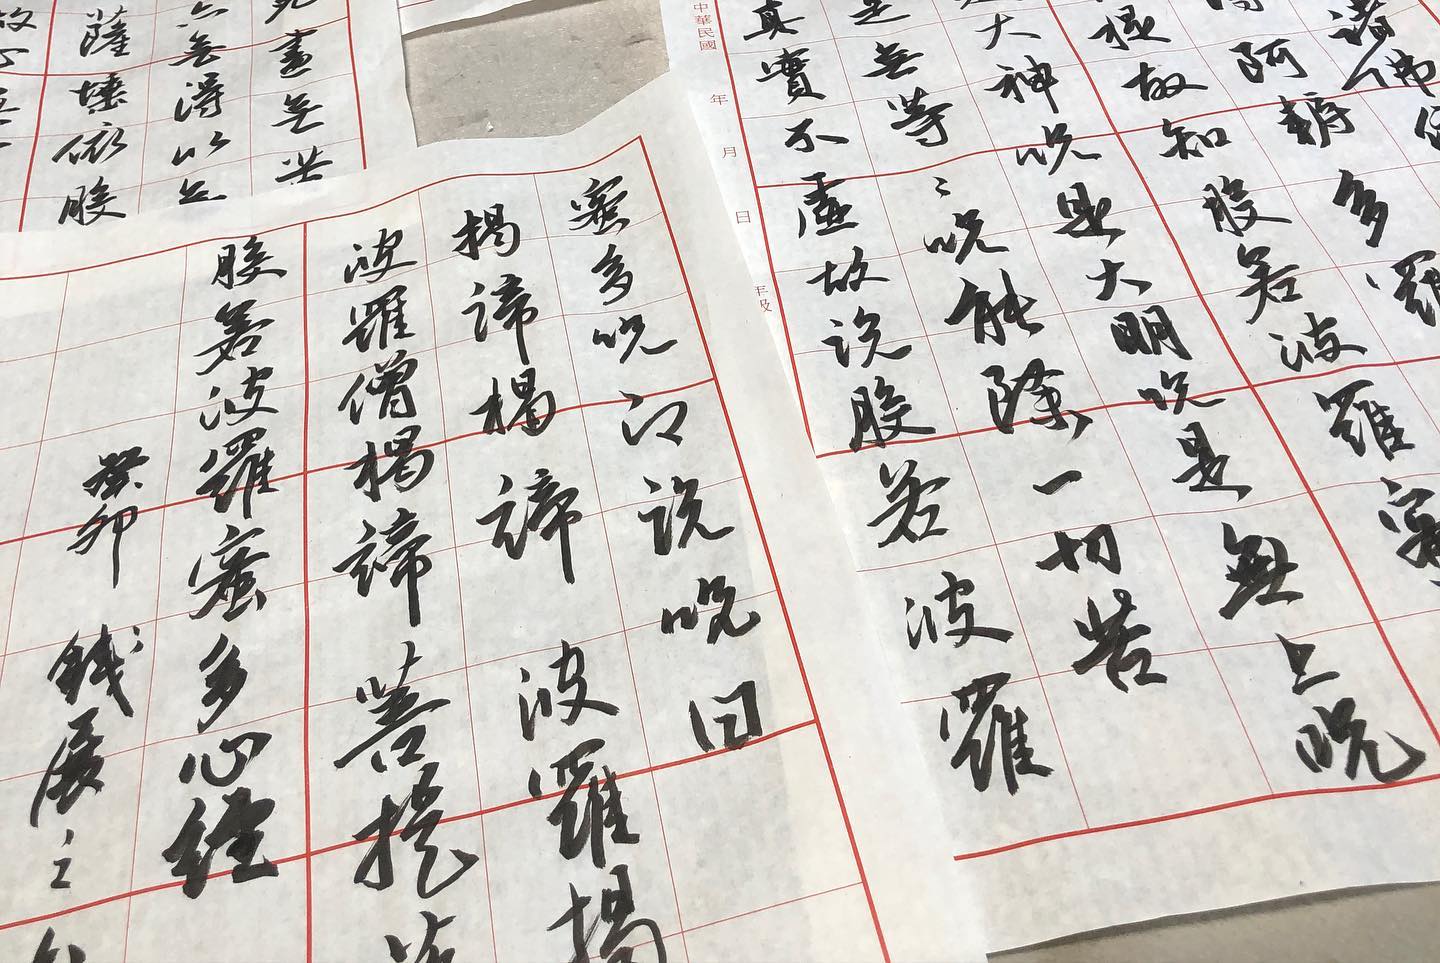 諸佛依
阿耨多羅
提故知般若波羅蜜
大神咒是大明咒是無上咒
是無等〻咒能除一切苦
真實不虛故說般若波羅
中華民國 年 月 日
年級
蜜多咒即說咒曰
揭諦揭諦波羅揭
波羅僧揭諦菩提
般若波羅蜜多心經
癸卯 錢展之
盡無苦
亦無得以無
薩埵依般
故